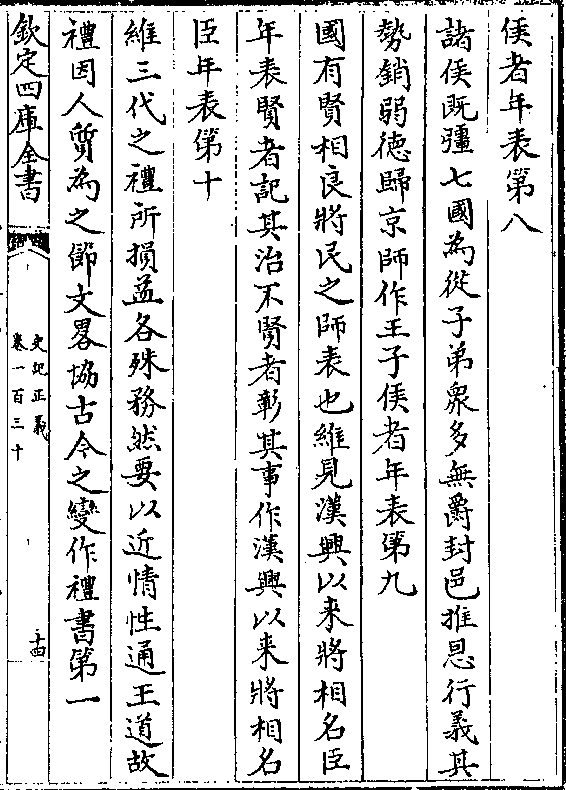 侯者年表第八
諸侯既彊七國為從子弟衆多無爵封邑推恩行義其
勢銷弱徳歸京師作王子侯者年表第九
國有賢相良將民之師表也維見漢興以来將相名臣
年表賢者記其治不賢者彰其事作漢興以来將相名
臣年表第十
維三代之禮所損益各殊務然要以近情性通王道故
禮因人質為之節文畧協古今之變作禮書第一
欽定四庫全書
史記正義
卷一百三十
十四